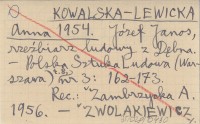 KOWALSKA-LEWICKA
Anna 1954. Józef Janos,
rzeźbiarz ludowy z Dębna.
– Polska Sztuka Ludowa (War-
szawa) R. 8. nr 3: 162-173.
Rec.: Zambrzycka A.
1956. – "ZWOLAKIEWICZ